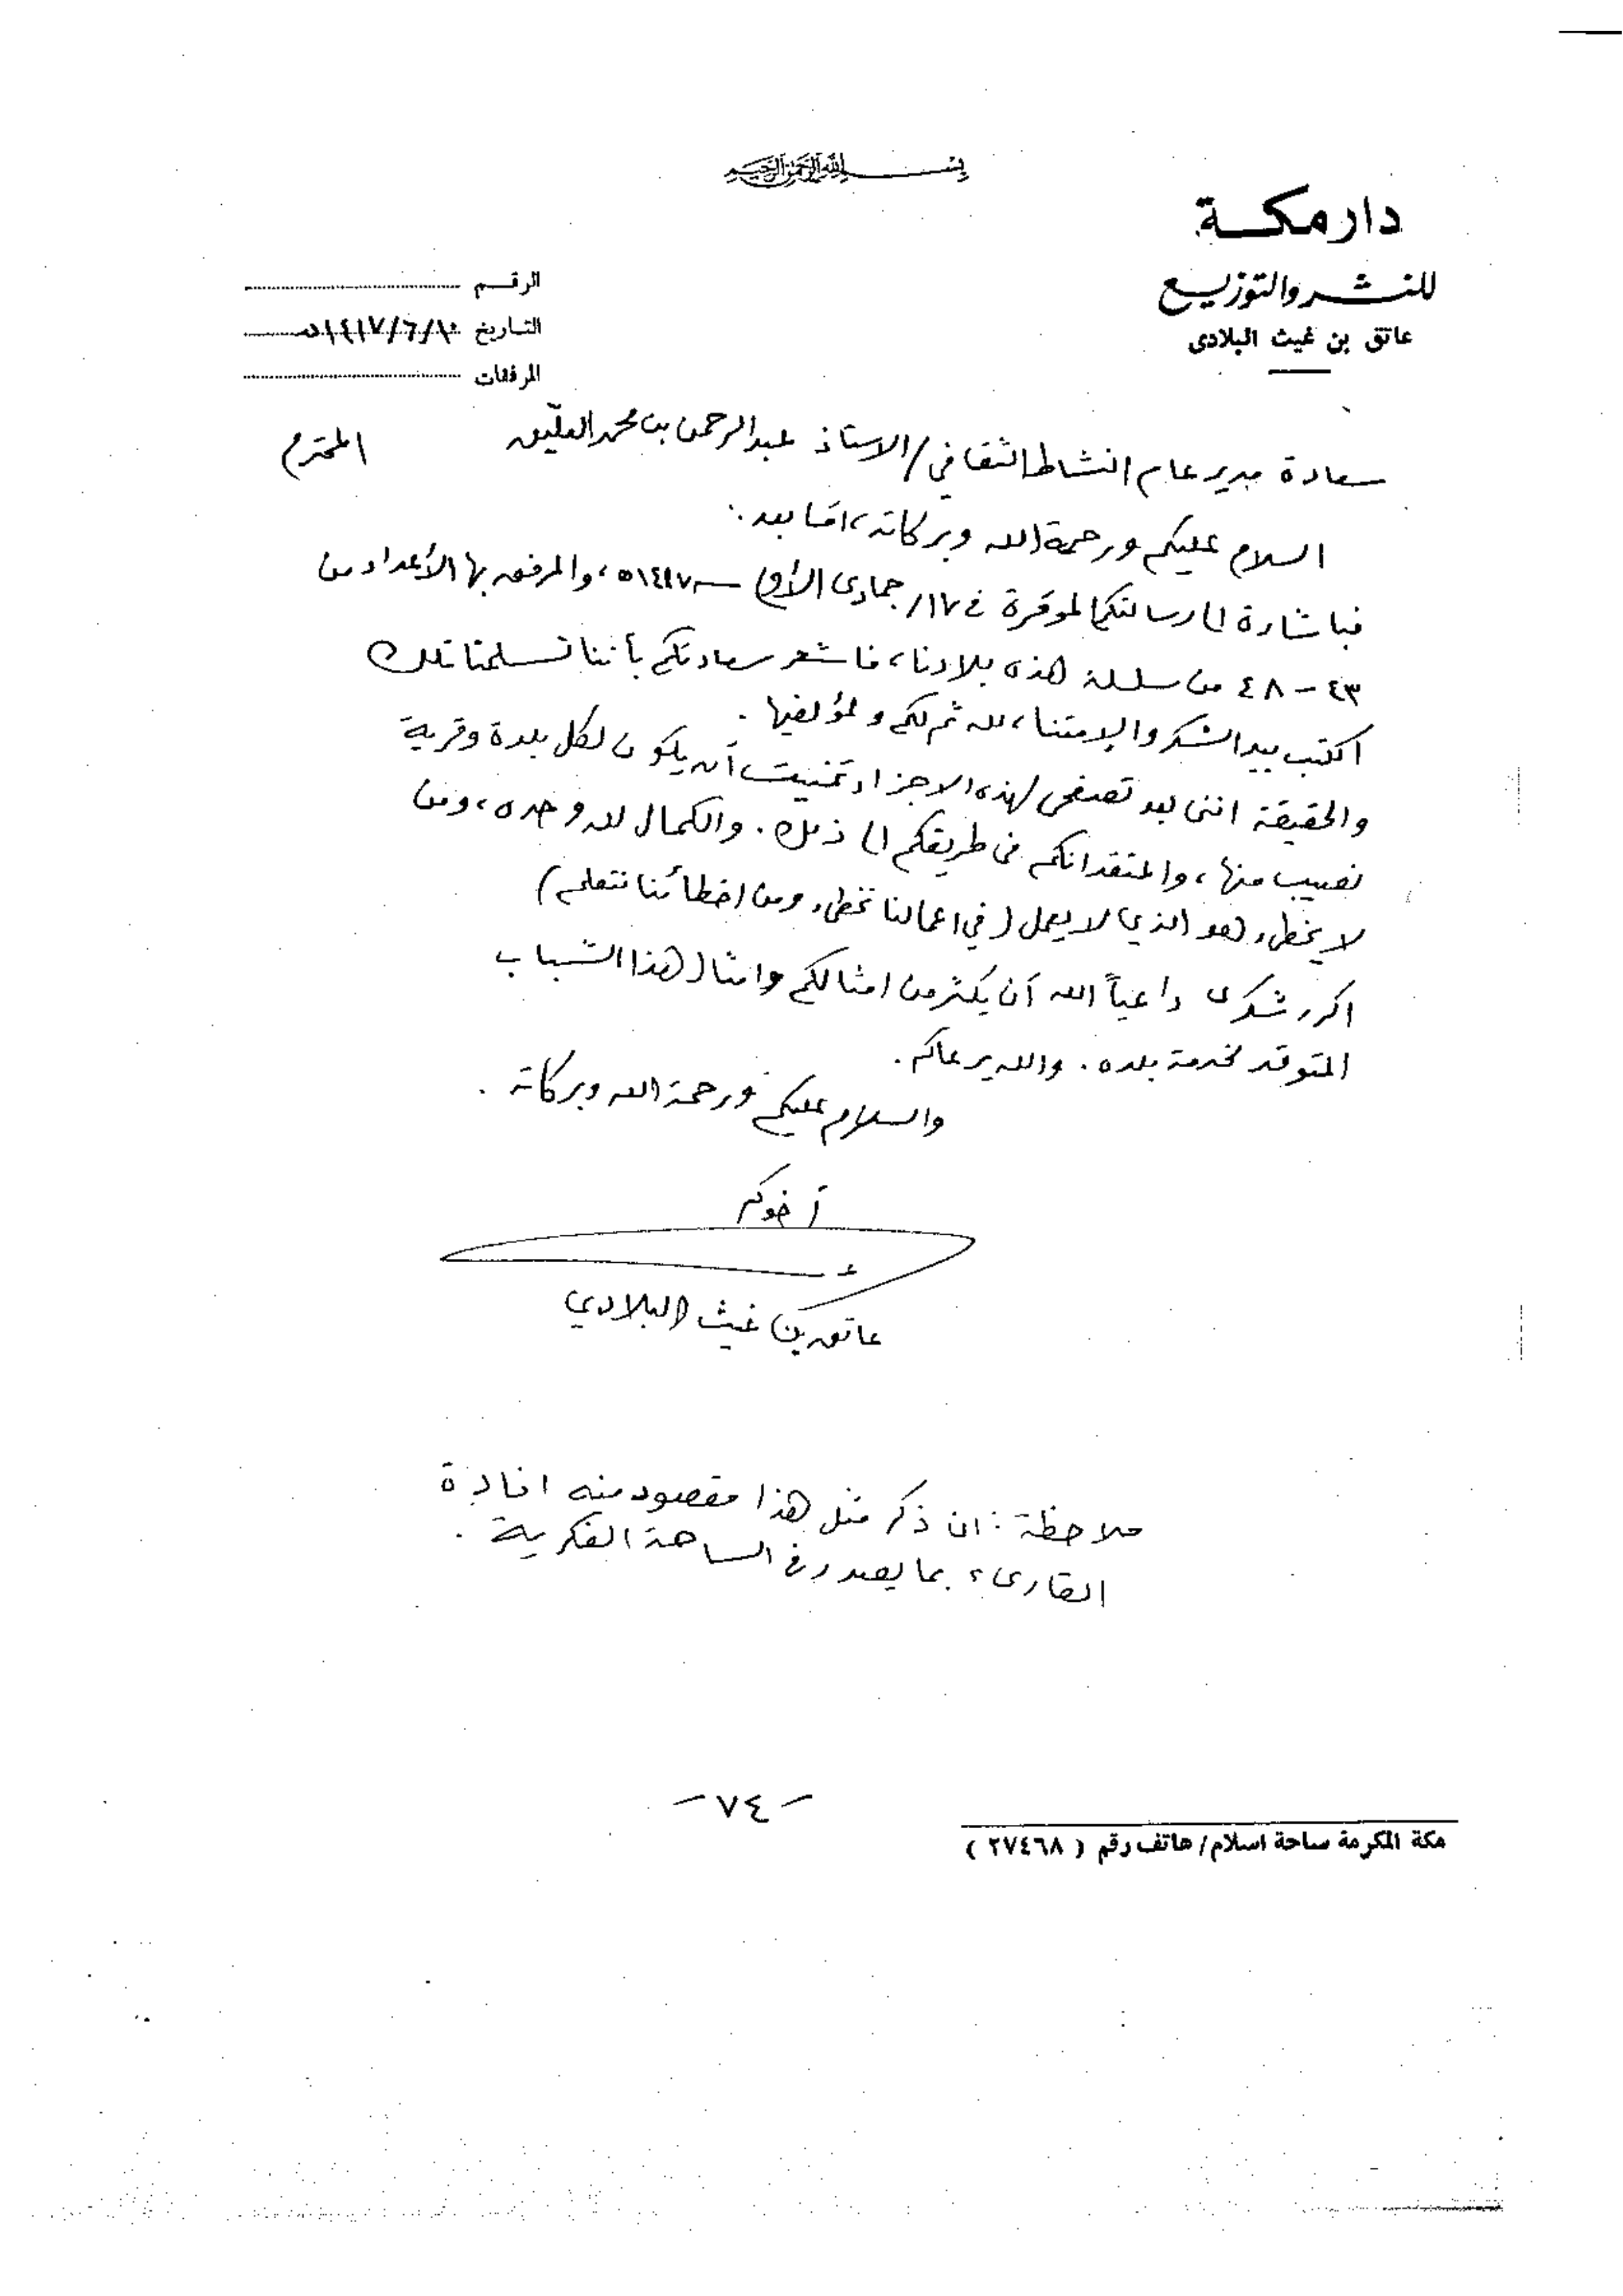 بسم الله الرحمن الرحيم
دار مكة
للنشر والتوزيع
عاتق بن غيث البلادى
الرقم
التاريخ ١٤١٧/٦/١٠هـ
المرفقات
سعادة مدير عام النشاط الثقافي / الاستاذ عبدالرحمن بن محمد العليّق المحترم
السلام عليكم ورحمة الله وبركاته، امّا بعد :
فبإشارة الى رسالتكم الموقرة في ١٧/ جمادى الأول سـ ١٤١٧هـ، والمرفق بها الأعداد من
٤٣ - ٤٨ من سلسلة هذه بلادنا، فاشعر سعادتكم بأننا تسلمنا تلك
الكتب بيد الشكر والإمتنا، لله ثم لكم ولمؤلفيها .
والحقيقة اننى بعد تصفحى لهذه الاجزاء تمنيت أن يكون لكل بلدة وقرية
نصيب منها، واعتقد انكم في طريقكم الى ذلك . والكمال لله وحده، ومن
لا يخطىء هو الذي لا يعمل (في اعمالنا نخطىء ومن اخطائنا نتعلم)
اكرر شكرى داعياً الله أن يكثر من امثالكم وامثال هذا الشباب
المتوقد لخدمة بلده . والله يرعاكم .
والسلام عليكم ورحمة الله وبركاته .
أخوكم
عاتق بن غيث البلادي
ملاحظة : ان ذكر مثل هذا مقصود منه افادة
القارىء بما يصدر في الساحة الفكرية .
- ٧٤ -
مكة المكرمة ساحة اسلام / هاتف رقم ( ٢٧٤٦٨ )